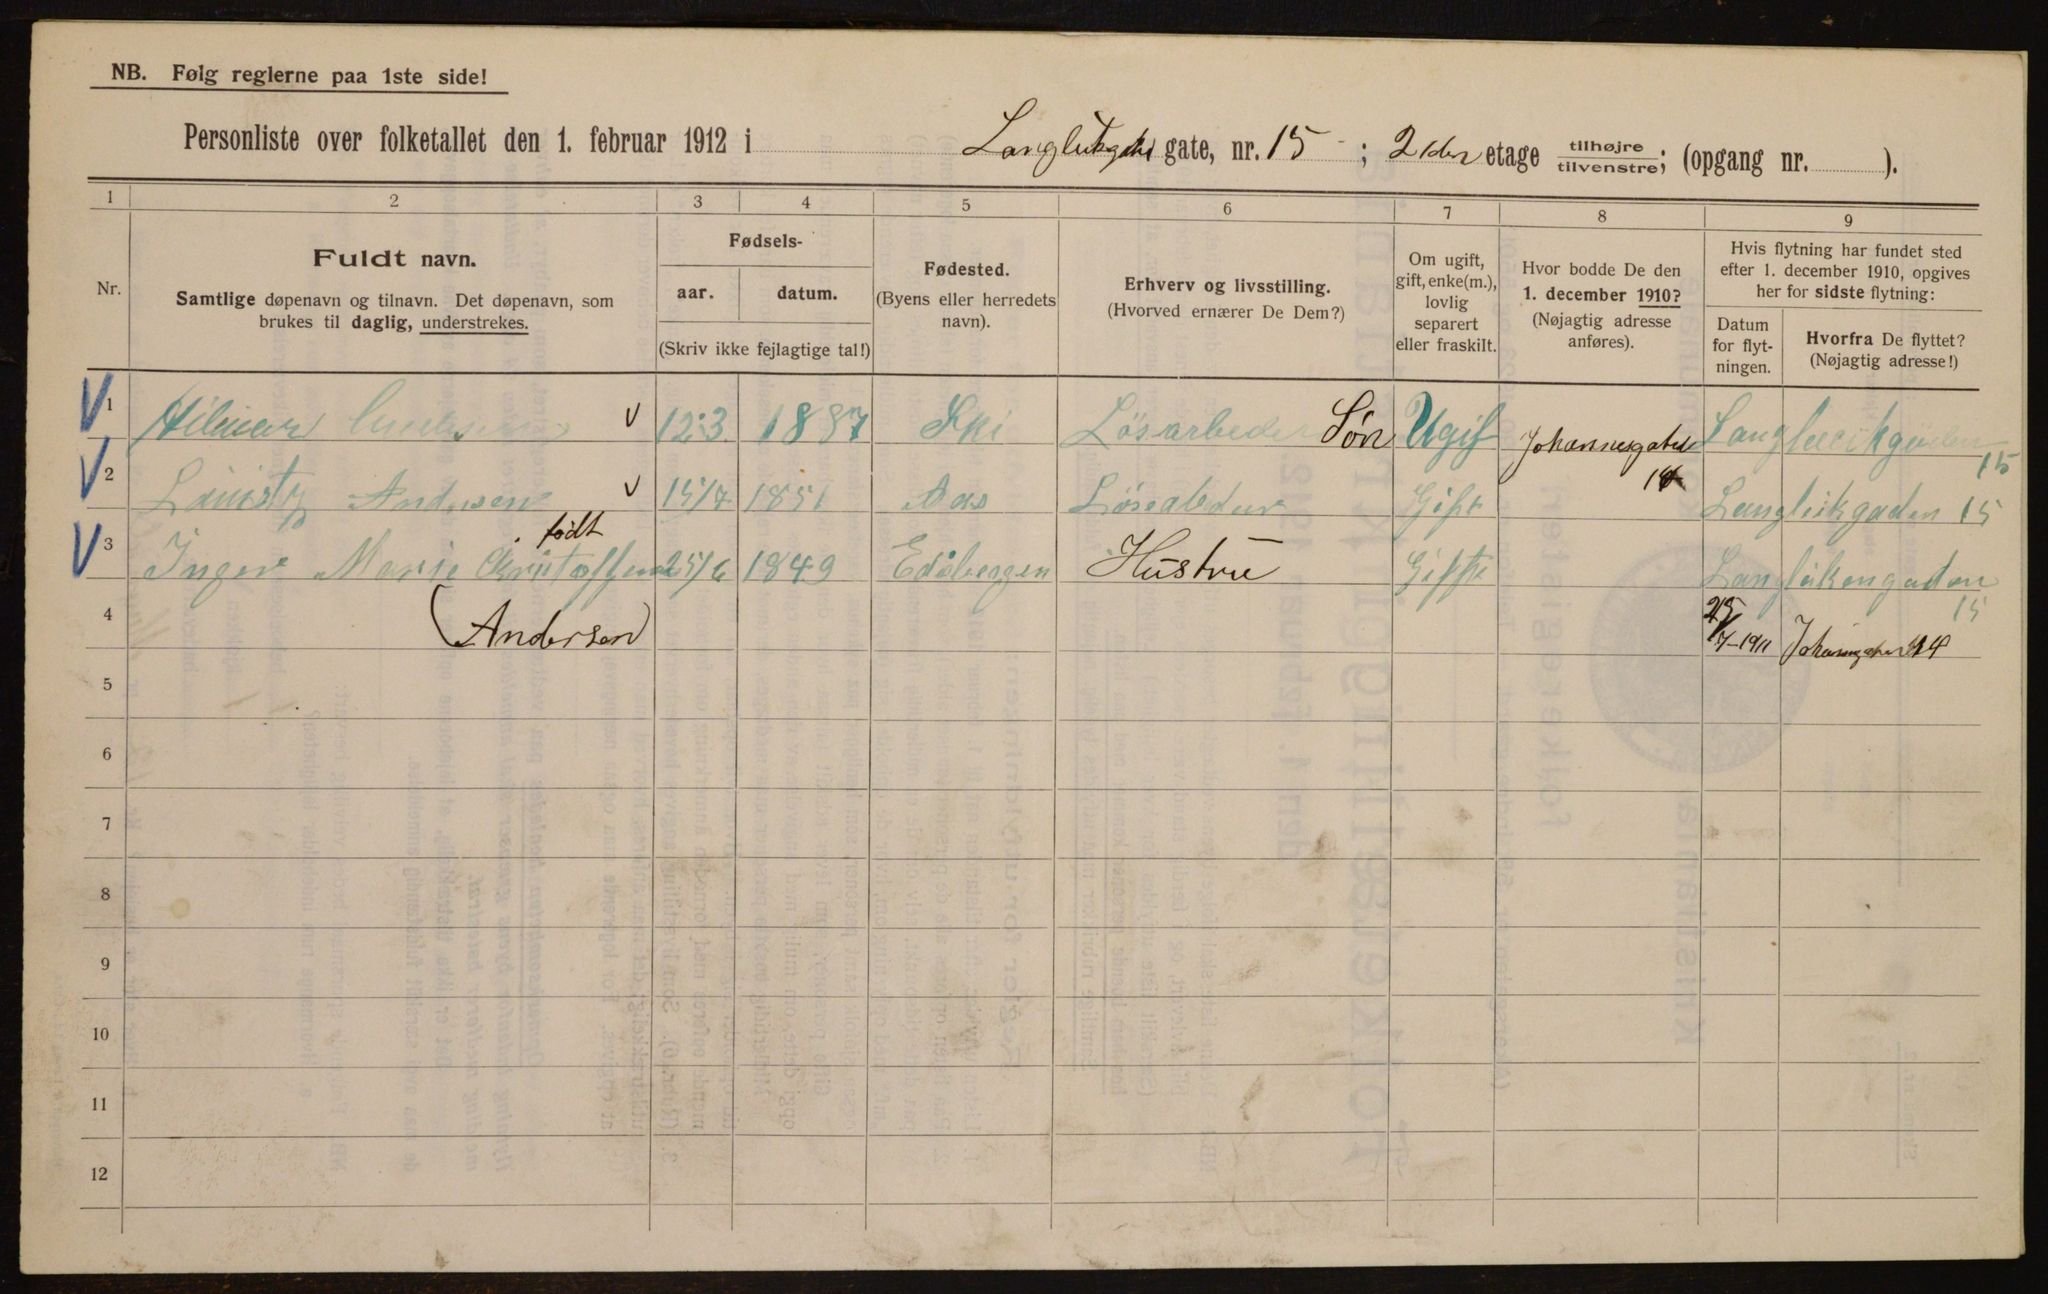 NB. Følg reglerne paa 1ste side!
Personliste over folketallet den 1. februar 1912 i gate, nr. 15 ; 2 den etage tilhøjre/tilvenstre; (opgang nr. ).
1 2 3 4 5 6 7 8 9
Nr.
Fuldt navn.
Samtlige døpenavn og tilnavn. Det døpenavn, som
brukes til daglig, understrekes.
Fødsels-
aar. datum.
(Skriv ikke fejlagtige tal!)
Fødested.
(Byens eller herredets
navn).
Erhverv og livsstilling.
(Hvorved ernærer De Dem?)
Om ugift,
gift, enke(m.),
lovlig
separert
eller fraskilt.
Hvor bodde De den
1. december 1910?
(Nøjagtig adresse
anføres).
Hvis flytning har fundet sted
efter 1. december 1910, opgives
her for sidste flytning:
Datum
for flyt-
ningen.
Hvorfra De flyttet?
(Nøjagtig adresse!)
1 Hilmar V 12.3 1887 Ski Søn Ugif Johannesgaten 14 15
2 Andersen V 15/7 1851 Aas Gift Langleikgaden 15
3 Inger Marie født 25/6 1849 Hustru Gift 15
4 (Andersen) 25/7-1911 14
5
6
7
8
9
10
11
12